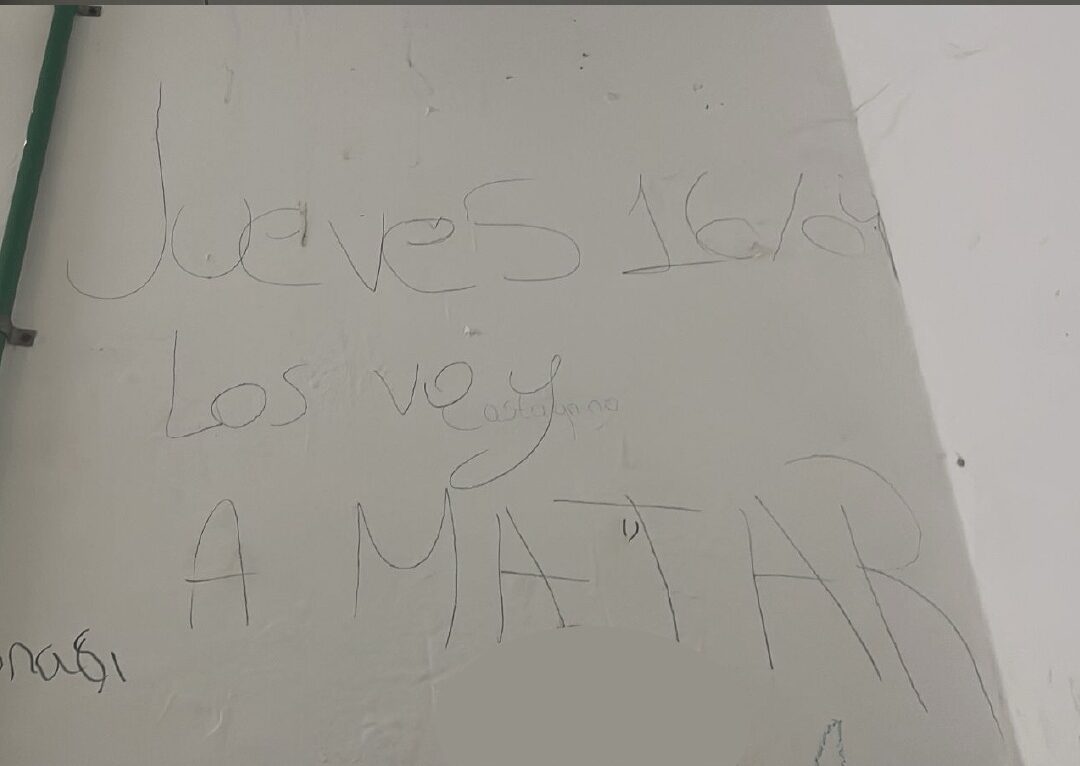 Jueves 16/04
Los voy
A MATAR